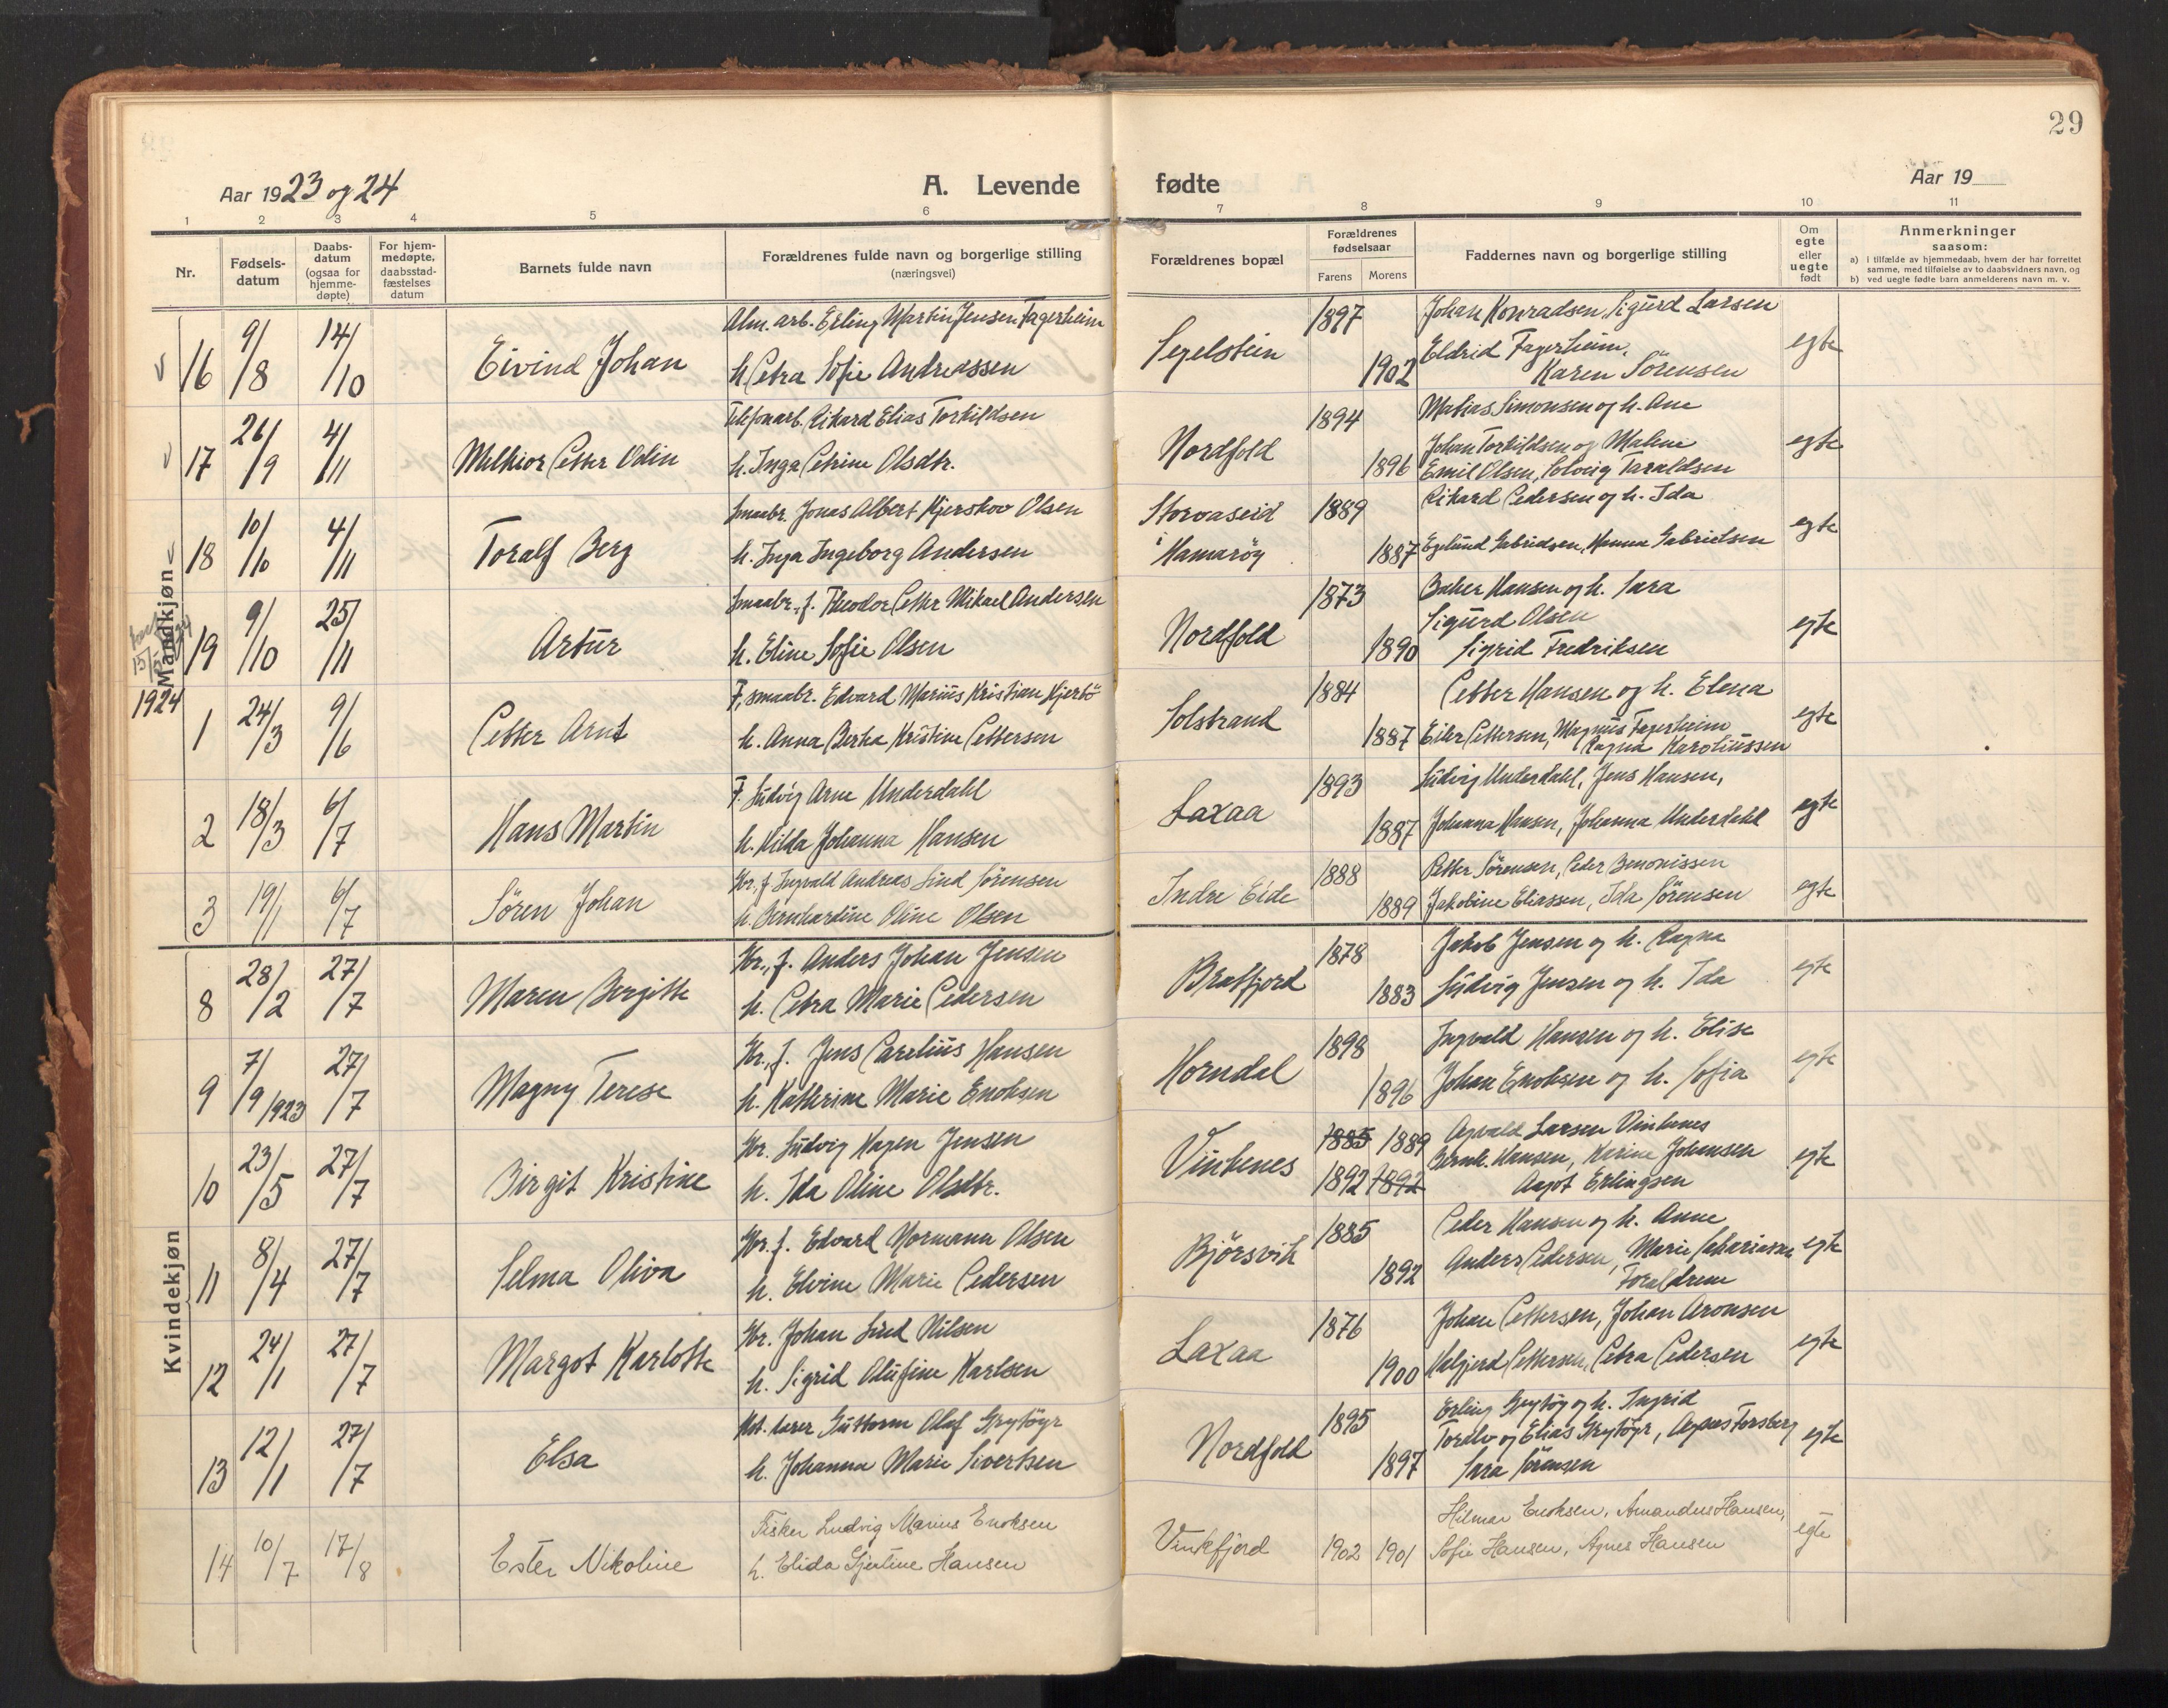 29
Aar 1923 og 24
A. Levende fødte
Aar 19
1 2 3 4 5 6 7 8 9 10 11
Nr.
Fødsels-
datum
Daabs-
datum
(ogsaa for
hjemme-
døpte)
For hjem-
medøpte,
daabsstad-
fæstelses
datum
Barnets fulde navn
Forældrenes fulde navn og borgerlige stilling
(næringsvei)
Forældrenes bopæl
Forældrenes
fødselsaar
Farens Morens
Faddernes navn og borgerlige stilling
Om
egte
eller
uegte
født
Anmerkninger
saasom:
a) i tilfælde av hjemmedaab, hvem der har forrettet
samme, med tilføielse av to daabsvidners navn, og
b) ved uegte fødte barn anmelderens navn m. v.
Mandkjøn
16 9/8 14/10 Eivind Johan
Alm. arb. Erling Martin Jensen Fagerheim
h. Petra Sofie Andreassen
Segelstein 1897 1902
Johan Konradsen, Sigurd Larsen
Eldrid Fagerheim,
Karen Sörensen
egte
17 26/9 4/11 Melkior Petter Odin
Telefonarb. Rikard Elias Torkildsen
h. Inga Petrine Olsdtr.
Nordfold 1894 1896
Matias Simonsen og h. Ane
Johan Torkildsen og Malene
Emil Olsen, Solveig Taraldsen
egte
18 10/10 4/11 Toralf Berg
Smaabr. Jonas Albert Kjerskov Olsen
h. Inga Ingeborg Andersen
Storvaseid
i Hamaröy
1889 1887
Rikard Pedersen og h. Ida
Egelund Gabrielsen, Hanna Gabrielsen
egte
19 9/10 25/11 Artur
Smaabr., f. Theodor Petter Mikael Andersen
h. Eline Sofie Olsen
Nordfold 1873 1890
Hansen og h. Sara
Sigurd Olsen
Sigrid Fredriksen
egte
1924
1 24/3 9/6 Petter Arnt
F., smaabr. Edvard Marius Kristian Kjerbö
h. Anna Berha Kristine Pettersen
Solstrand 1884 1887
Petter Hansen og h. Elena
Eiler Pettersen, Magnus Fagerheim
Ragna Karoliussen
egte
2 18/3 6/7 Hans Martin
F. Ludvig Arne Underdahl
h. Hilda Johanna Hansen
Laxaa 1893 1887
Ludvig Underdahl, Jens Hansen,
Johanna Hansen, Johanna Underdahl
egte
3 19/1 6/7 Sören Johan
Gbr., f. Ingvald Andreas Lind Sörensen
h. Bernhardine Oline Olsen
Indre Eide 1888 1889
Petter Sörensen, Peder Benonissen
Jakobine Eliassen, Ida Sörensen
egte
Kvindekjøn
8 28/2 27/7 Maren Bergitte
Gbr., f. Anders Johan Jensen
h. Petra Marie Pedersen
Bratfjord 1878 1883
Jakob Jensen og h. Ragna
Ludvig Jensen og h. Ida
egte
9 7/9 1923 27/7 Magny Terese
Gbr., f. Jens Carelius Hansen
h. Kathrine Marie Enoksen
Horndal 1898 1896
Ingvald Hansen og h. Elise
Johan Enoksen og h. Sofia
egte
10 23/5 27/7 Birgit Kristine
Gbr. Ludvig Hagen Jensen
h. Ida Oline Olsdtr.
Vinkenes 1885 1889
1892 1892
Agvald Larsen Vinkenes
Bernh. Hansen, Karine Johansen
Aagot Erlingsen
egte
11 8/4 27/7 Selma Oliva
Gbr. f. Edvard Normann Olsen
h. Elvine Marie Pedersen
Bjørsvik 1885 1892
Peder Hansen og h. Anne
Anders Pedersen, Marie Sakariassen
Foræ­ldrene
egte
12 24/1 27/7 Margot Karlotte
Gbr. Johan Lind Nilsen
h. Sigrid Olufine Karlsen
Laxaa 1876 1900
Johan Pettersen, Johan Aronsen
Valgjerd Pettersen, Petra Pedersen
egte
13 12/1 27/7 Elsa
lærer Guttorm Olaf Grytöyr
h. Johanna Marie Sivertsen
Nordfold 1895 1897
Erling Grytöyr og h. Ingrid
Toralv og Elias Grytöyr, Agnes Forsberg
Sara Sörensen
egte
14 10/7 17/8 Ester Nikoline
Fisker Ludvig Marius Enoksen
h. Elida Gjertine Hansen
Vinkfjord 1902 1901
Hilmar Enoksen, Amandus Hansen,
Sofie Hansen, Agnes Hansen
egte